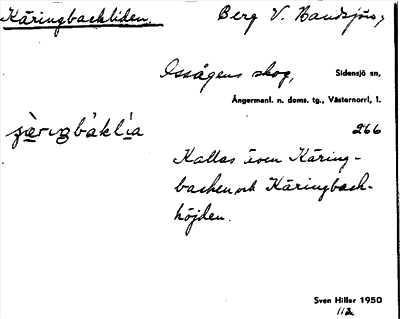 Käringbackliden. Berg V. Nandsjön,
Ossågens skog, Sidensjö sn,
Ångermanl. n. doms. tg., Västernorrl. l.
266
Kallas även Käring-
backen och Käringback-
höjden.
Sven Hiller 1950
112